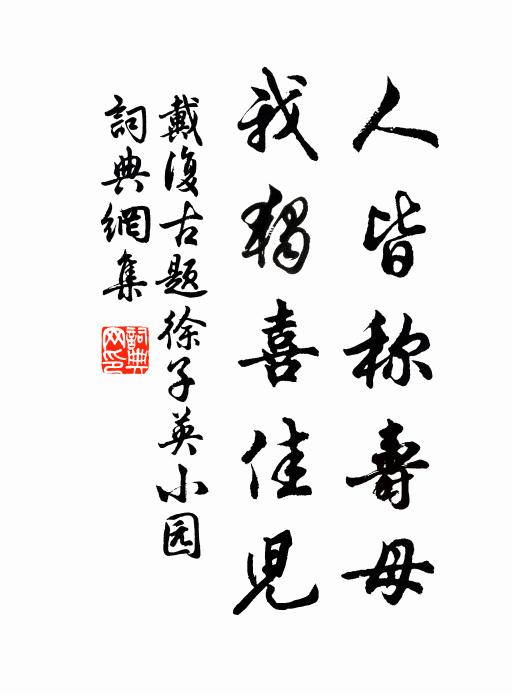 人皆称壽母
我獨喜佳児
戴復古题徐子英小园
詞典網集
詞典网印